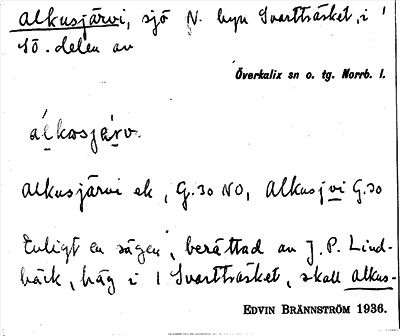 Alkusjärvi, sjö N. byn Svartträsket, i
SÖ. delen av
Överkalix sn o. tg. Norrb. l.
álkosjä́rv.
Alkusjärvi ek, G.30 NO, Alkusjvi G.30
Enligt en sägen, berättad av J. P. Lind-
bäck, häg i 1 Svartträsket, skall Alkus-
EDVIN BRÄNNSTRÖM 1936.